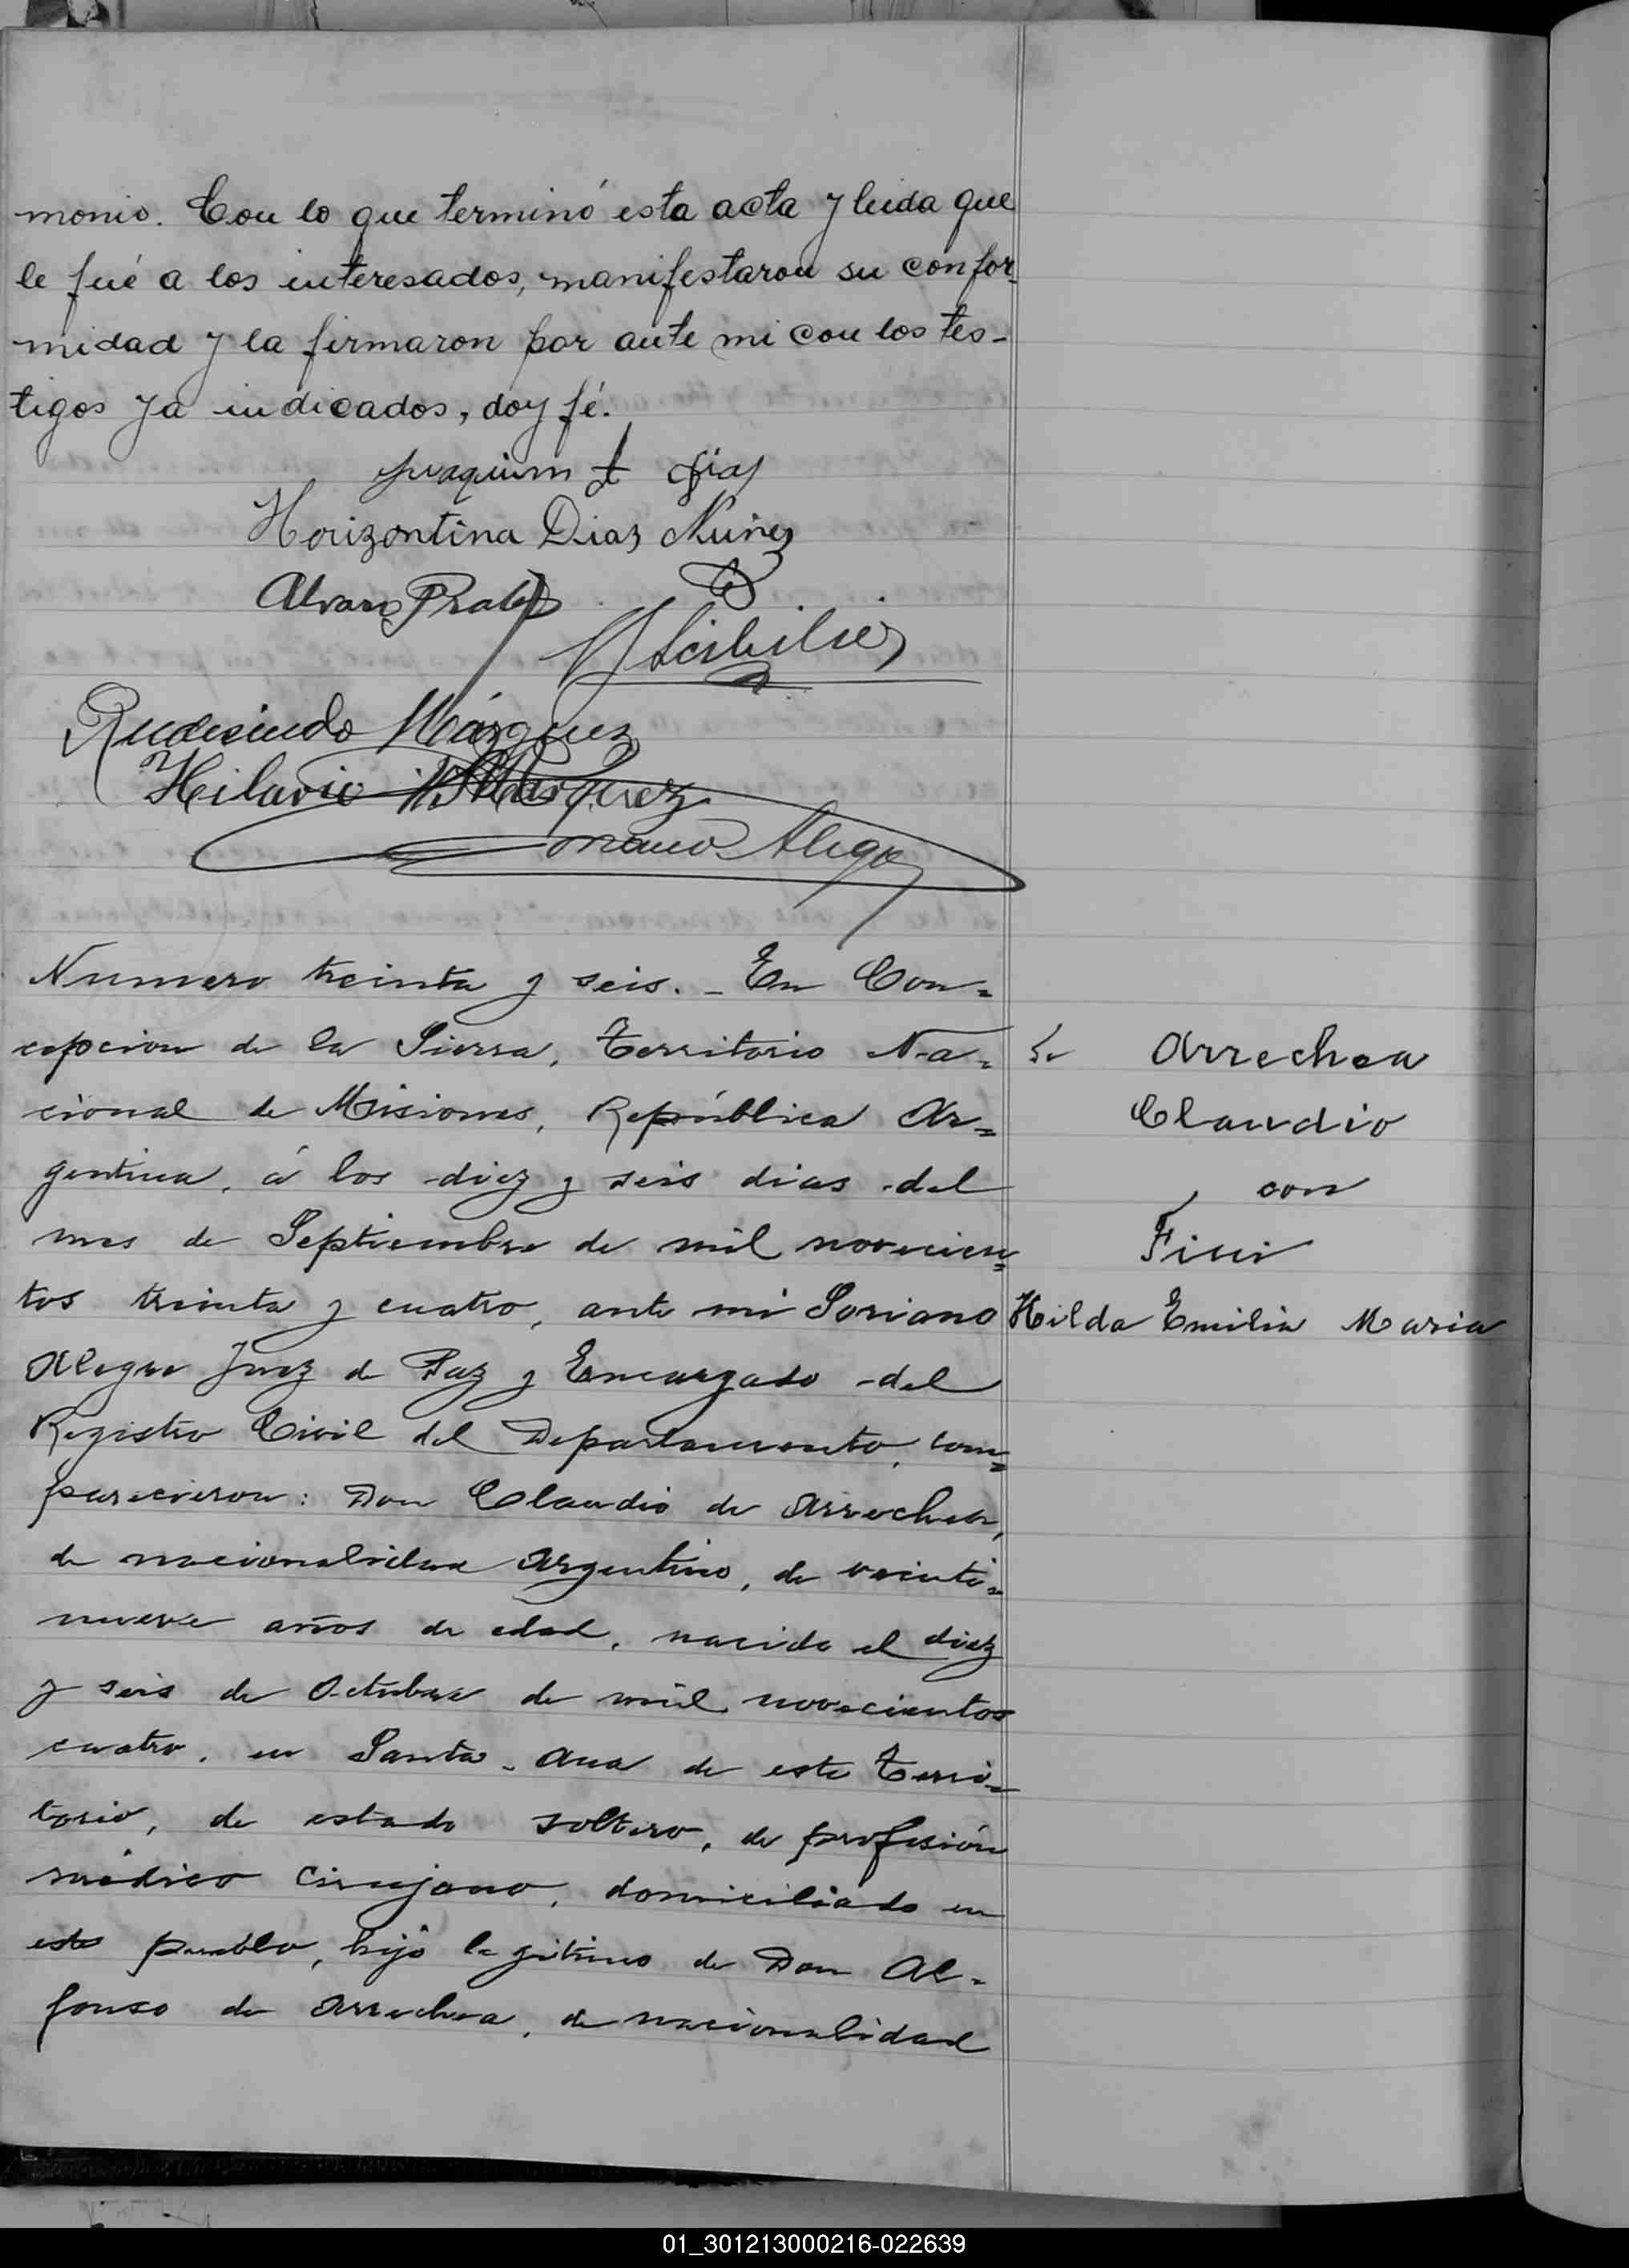 monio. Con lo que terminó esta acta y leida que
le fué a los interesados, manifestaron su confor-
midad y la firmaron por ante mi con los tes-
tigos ya indicados, doy fé.
Horizontina Diaz Nuñez
Alvaro
Rudesindo Márquez
Hilario Márquez
Alegre
Numero treinta y seis. _ En Con=
cepcion de la Sierra, Territorio Na=
cional de Misiones, República Ar=
gentina, á los diez y seis dias del
mes de Septiembre de mil novecien=
tos treinta y cuatro, ante mi Soriano
Alegre Juez de Paz y Encargado del
Registro Civil del Departamento, com=
parecieron: Don Claudio de Arrechea,
de nacionalidad Argentino, de veinti=
nueve años de edad, nacido el diez
y seis de Octubre de mil novecientos
cuatro, en Santa Ana de este Terri=
torio, de estado soltero, de profesión
médico Cirujano, domiciliado en
este pueblo, hijo legitimo de Don Al=
fonso de Arrechea, de nacionalidad
de Arrechea
Claudio
con
Fini
Hilda Emilia Maria
01_301213000216-022639